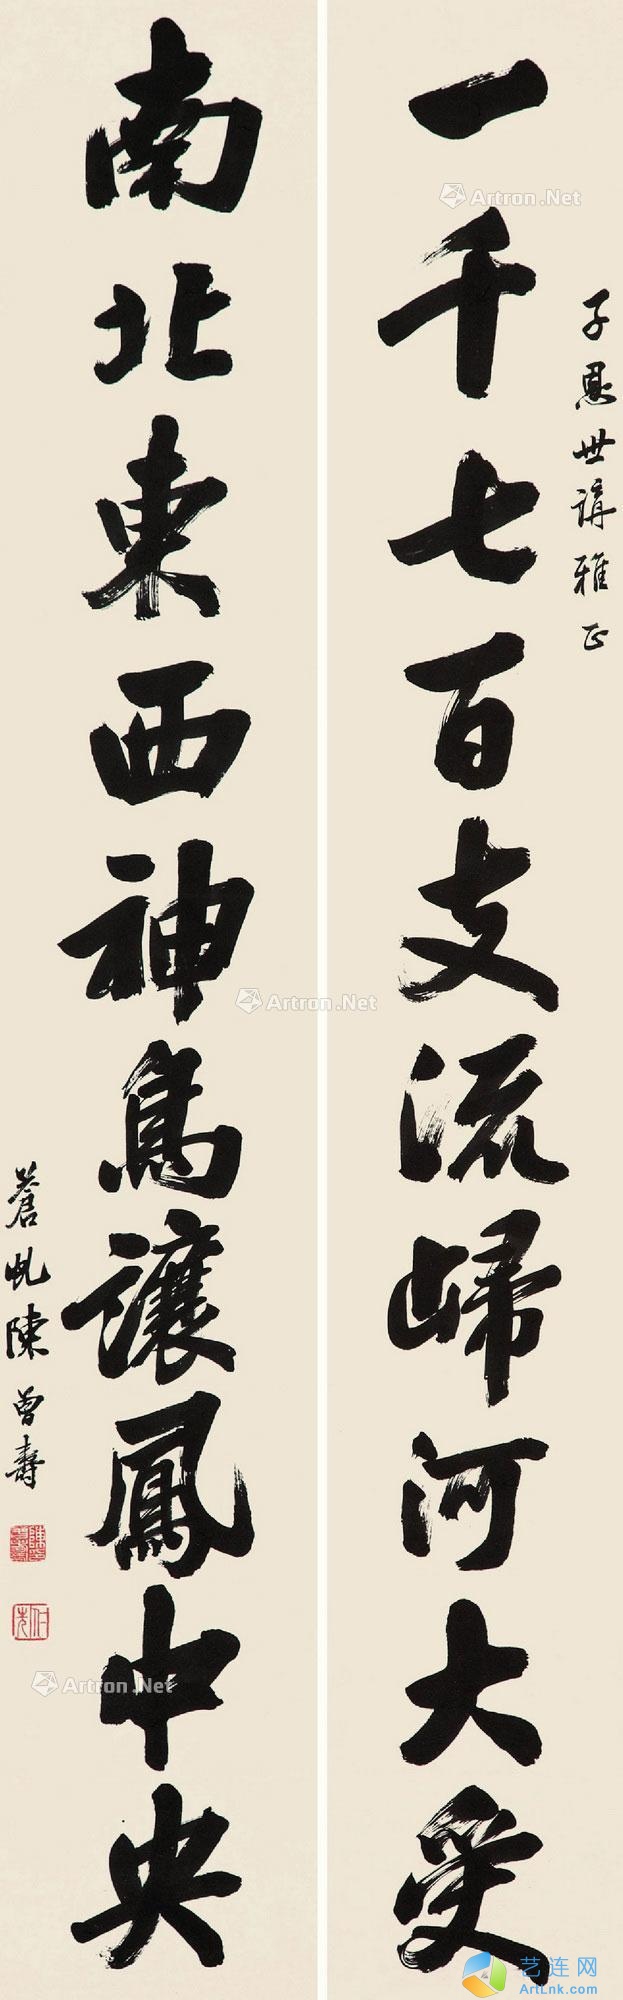 子恩世講雅正
一千七百支流歸河大受
南北東西神鳥讓鳳中央
蒼虬陳曾壽
Artron.Net
Artron.Net
Artron.Net
艺连网
ArtLnk.com